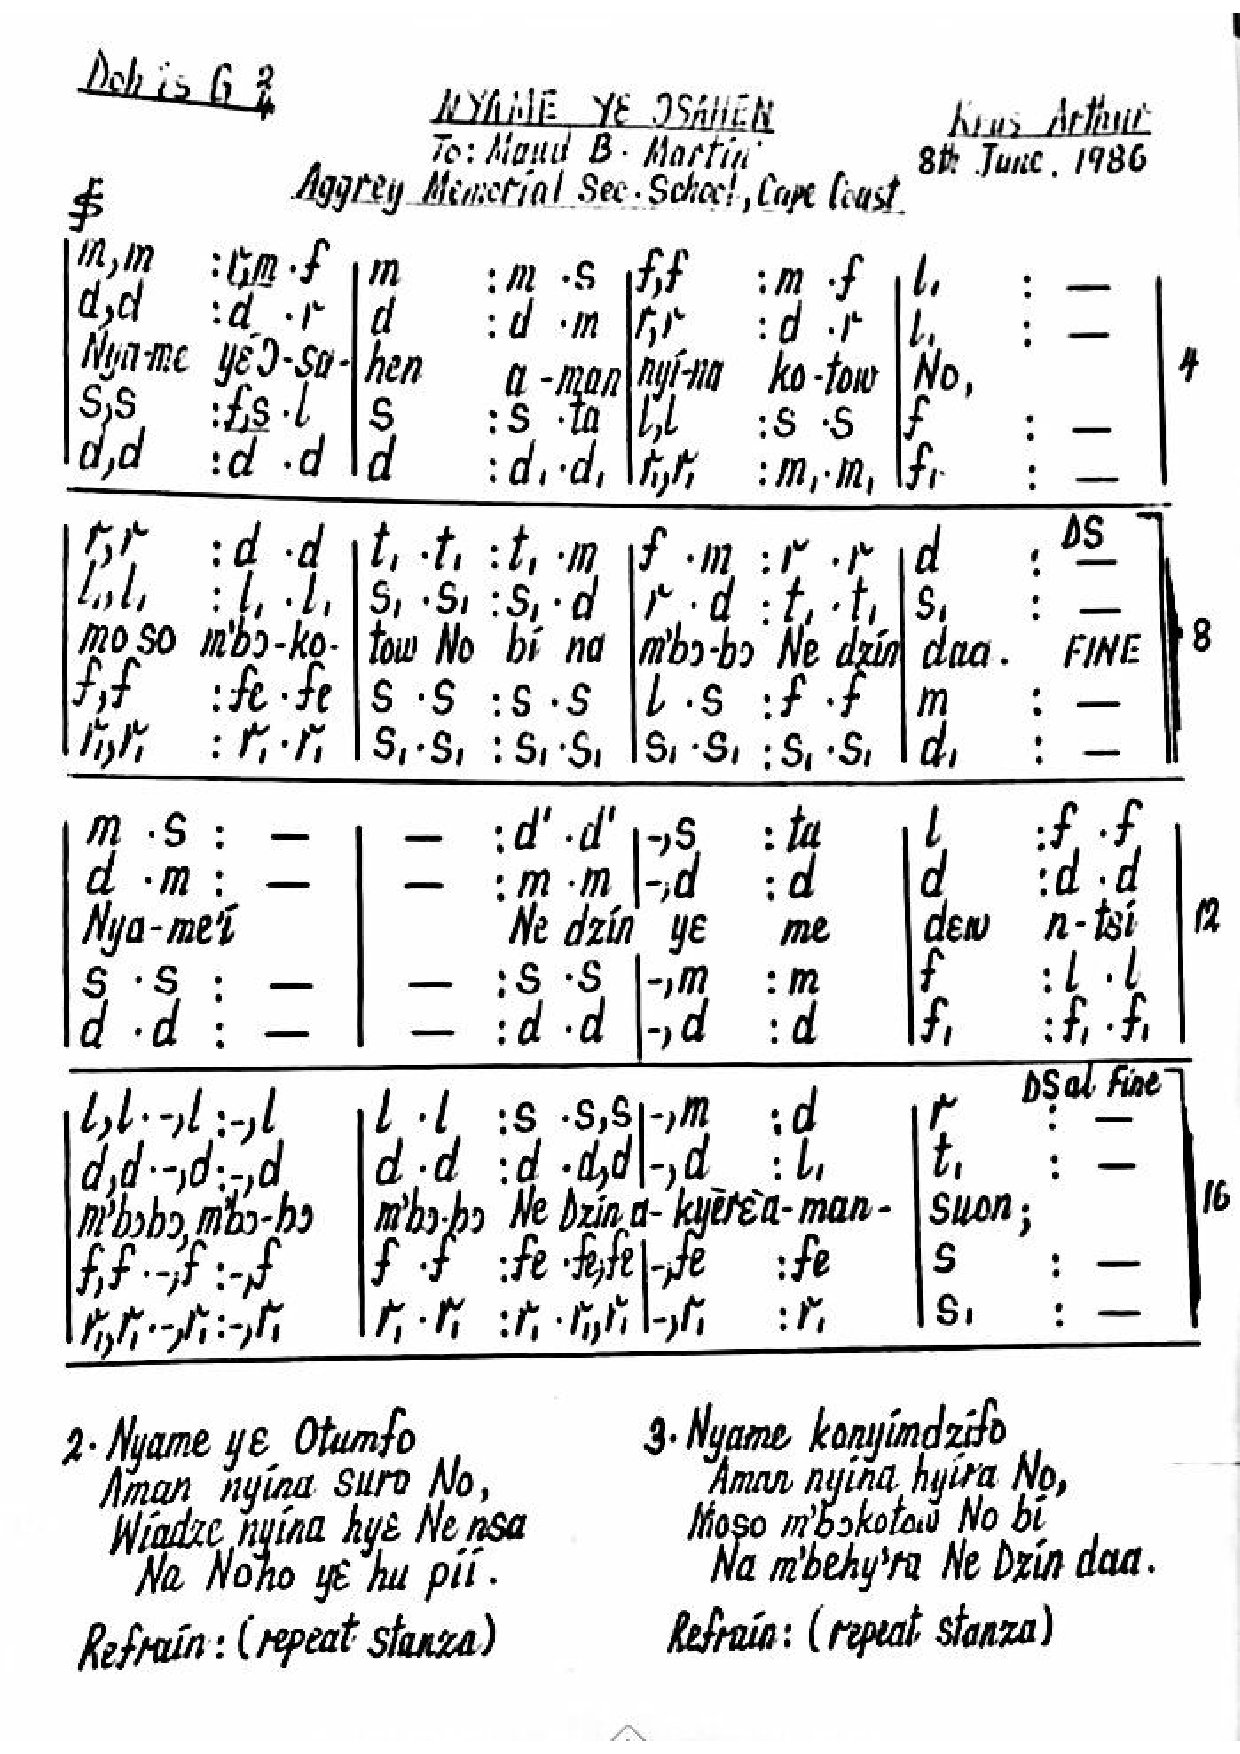 Doh is G 2/4
NYAME YƐ ƆSAHEN
Krus Arthur
To: Maud B. Martin
8th June, 1986
Aggrey Memorial Sec. School, Cape Coast
m,m :r,m .f | m :m .s | f,f :m .f | l, : —
d,d :d .r | d :d .m | r,r :d .r | l, : —
Nya-me yɛ́Ɔ-sa- hen a-man nyí-na ko-tow No, 4
s,s :f,s .l | s :s .ta | l,l :s .s | f : —
d,d :d .d | d :d, .d, | r,,r, :m, .m, | f, : —
DS
r,r :d .d | t, .t, :t, .m | f .m :r .r | d : —
l,,l, :l, .l, | s, .s, :s, .d | r .d :t, .t, | s, : —
mo so m'bɔ-ko- tow No bí na m'bɔ-bɔ Ne dzín daa. FINE 8
f,f :fe .fe | s .s :s .s | l .s :f .f | m : —
r,,r, :r, .r, | s, .s, :s, .s, | s, .s, :s, .s, | d, : —
m .s : — | — :d' .d' | -,s :ta | l :f .f
d .m : — | — :m .m | -,d :d | d :d .d
Nya-me'í Ne dzín yɛ me dɛw n-tsí 12
s .s : — | — :s .s | -,m :m | f :l .l
d .d : — | — :d .d | -,d :d | f, :f, .f,
DS al Fine
l,l .-,l :-,l | l .l :s .s,s | -,m :d | r : —
d,d .-,d :-,d | d .d :d .d,d | -,d :l, | t, : —
m'bɔbɔ, m'bɔ-bɔ m'bɔ-bɔ Ne Dzín a-kyèrɛ̀a-man- suon; 16
f,f .-,f :-,f | f .f :fe .fe,fe | -,fe :fe | s : —
r,,r, .-,r, :-,r, | r, .r, :r, .r,,r, | -,r, :r, | s, : —
2. Nyame yɛ Otumfo
Aman nyína suro No,
Wíadze nyína hyɛ Ne nsa
Na Noho yɛ hu píí.
Refraín: (repeat stanza)
3. Nyame konyímdzífo
Aman nyína hyíra No,
Moso m'bɔkotow No bí
Na m'behy'ra Ne Dzín daa.
Refraín: (repeat stanza)